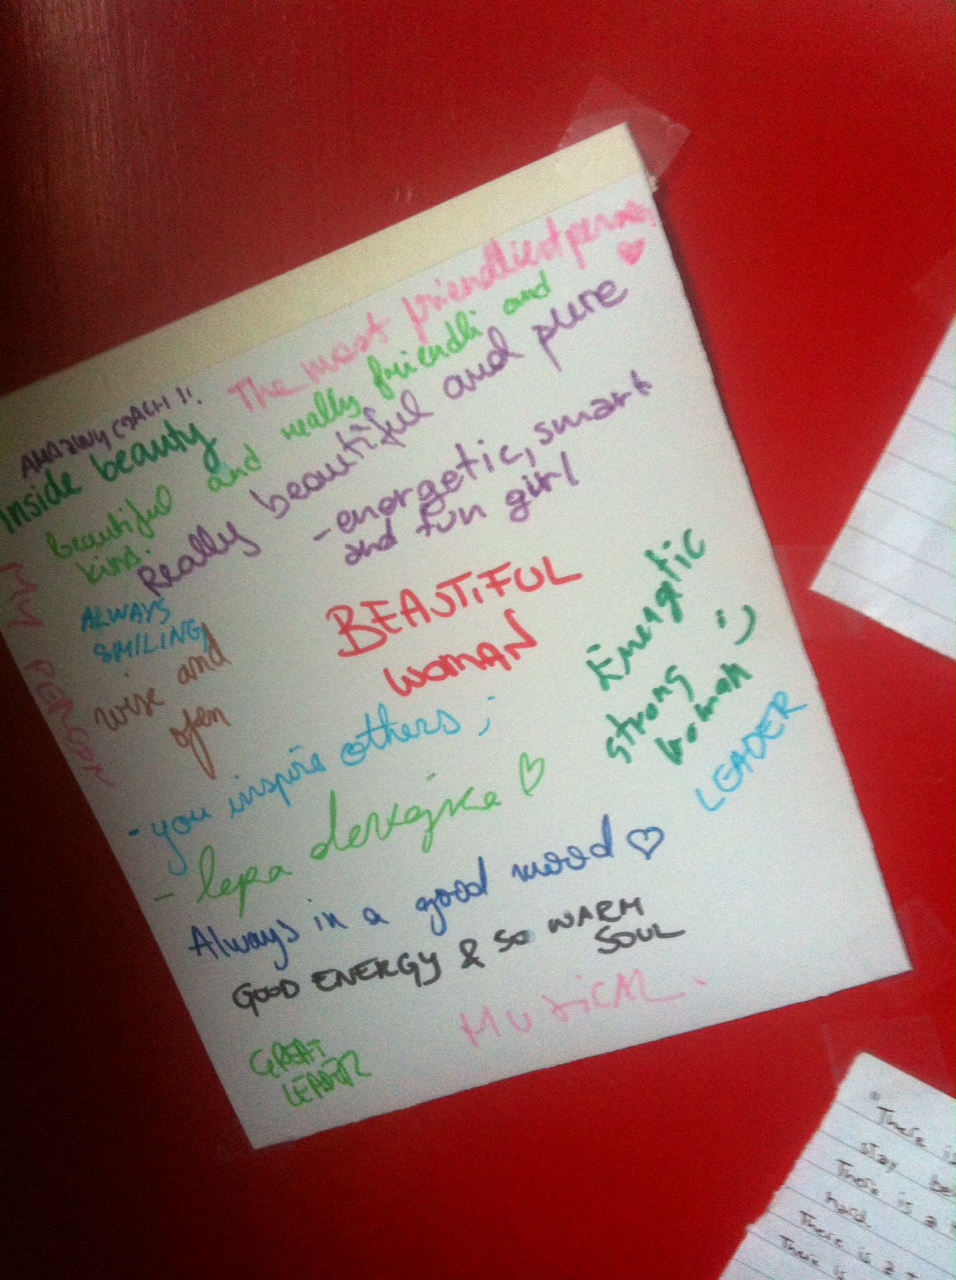 The most friendliest person
AMAZING COACH !!
Inside beauty
beautiful and really friendli and
kind.
Really beautiful and pure
- energetic, smart
and fun girl
MY PERSON
ALWAYS
SMILING
BEAUTIFUL
WOMAN
wise and
open
Energetic
strong
woman :)
- you inspire others ;
LEADER
- lepa devojka ♡
Always in a good mood ♡
GOOD ENERGY & SO WARM
SOUL
MUSICAL.
GREAT
LEADER
"There is
stay
There is a
hard.
There is a
There is